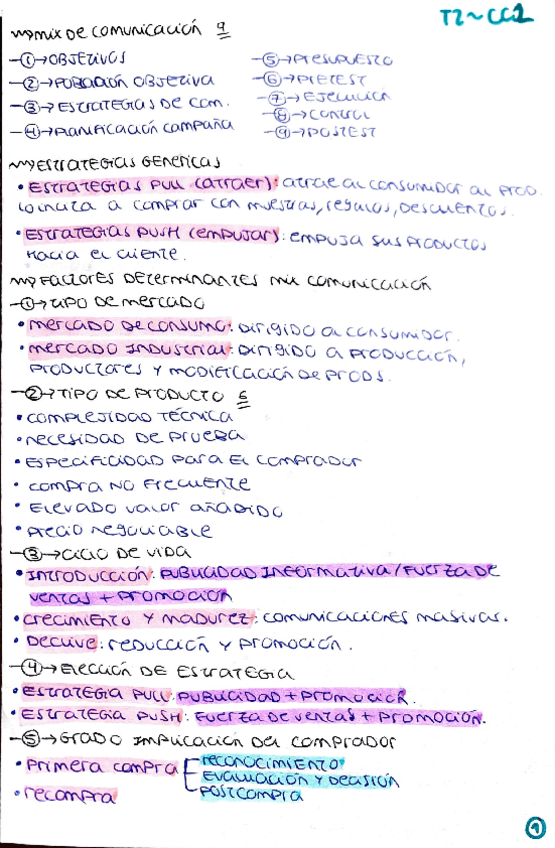 T2~CC2
MIX DE COMUNICACIÓN 9
① → OBJETIVOS
② → POBLACIÓN OBJETIVA
③ → ESTRATEGIAS DE COM.
④ → PLANIFICACIÓN CAMPAÑA
⑤ → PRESUPUESTO
⑥ → PRETEST
⑦ → EJECUCIÓN
⑧ → CONTROL
⑨ → POSTEST
ESTRATEGIAS GENÉRICAS
• ESTRATEGIAS PULL (ATRAER): ATRAE AL CONSUMIDOR AL PROD.
LO INCITA A COMPRAR CON MUESTRAS, REGALOS, DESCUENTOS.
• ESTRATEGIAS PUSH (EMPUJAR): EMPUJA SUS PRODUCTOS
HACIA EL CLIENTE.
FACTORES DETERMINANTES MIX COMUNICACIÓN
① → TIPO DE MERCADO
• MERCADO DE CONSUMO: DIRIGIDO AL CONSUMIDOR.
• MERCADO INDUSTRIAL: DIRIGIDO A PRODUCCIÓN,
PRODUCTORES Y MODIFICACIÓN DE PRODS.
② → TIPO DE PRODUCTO 6
• COMPLEJIDAD TÉCNICA
• NECESIDAD DE PRUEBA
• ESPECIFICIDAD PARA EL COMPRADOR
• COMPRA NO FRECUENTE
• ELEVADO VALOR AÑADIDO
• PRECIO NEGOCIABLE
③ → CICLO DE VIDA
• INTRODUCCIÓN: PUBLICIDAD INFORMATIVA / FUERZA DE
VENTAS + PROMOCIÓN
• CRECIMIENTO Y MADUREZ: COMUNICACIONES MASIVAS.
• DECLIVE: REDUCCIÓN Y PROMOCIÓN.
④ → ELECCIÓN DE ESTRATEGIA
• ESTRATEGIA PULL: PUBLICIDAD + PROMOCIÓN.
• ESTRATEGIA PUSH: FUERZA DE VENTAS + PROMOCIÓN.
⑤ → GRADO IMPLICACIÓN DEL COMPRADOR
• PRIMERA COMPRA
RECONOCIMIENTO
EVALUACIÓN Y DECISIÓN
POSTCOMPRA
• RECOMPRA
①